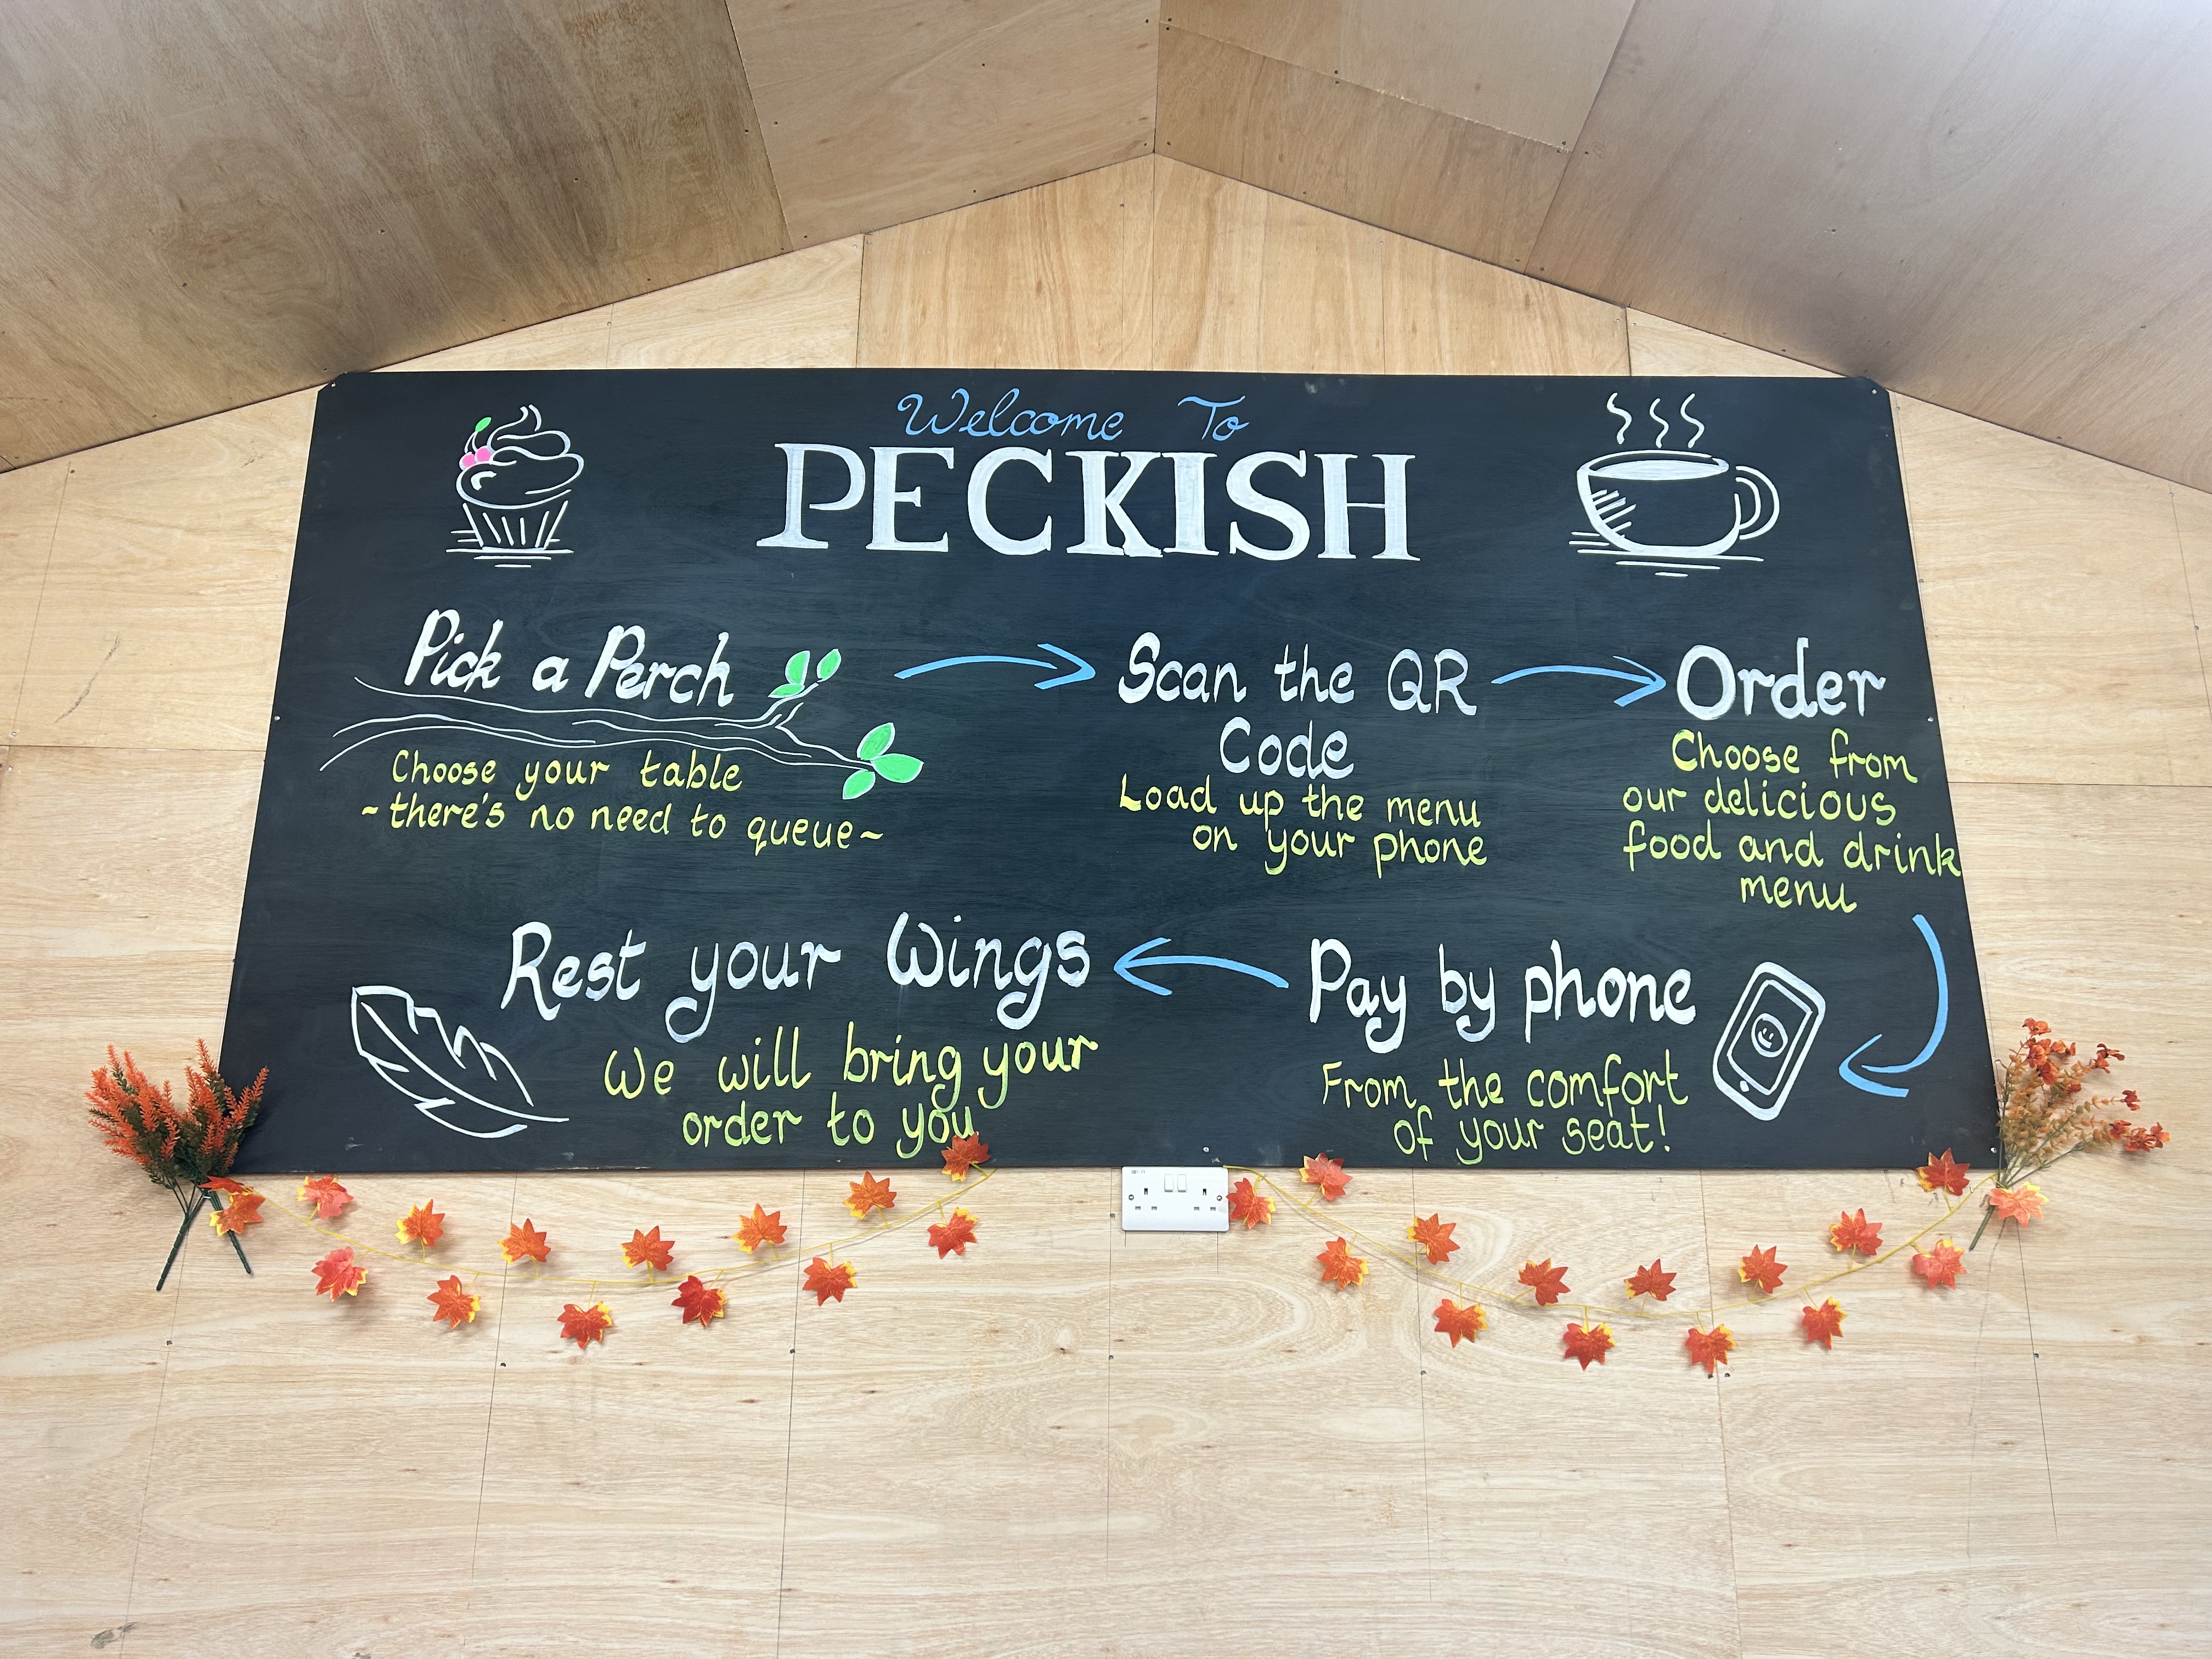 Welcome To
PECKISH
Pick a Perch
Choose your table
~there's no need to queue~
Scan the QR
Code
Load up the menu
on your phone
Order
Choose from
our delicious
food and drink
menu
Pay by phone
From the comfort
of your seat!
Rest your Wings
We will bring your
order to you